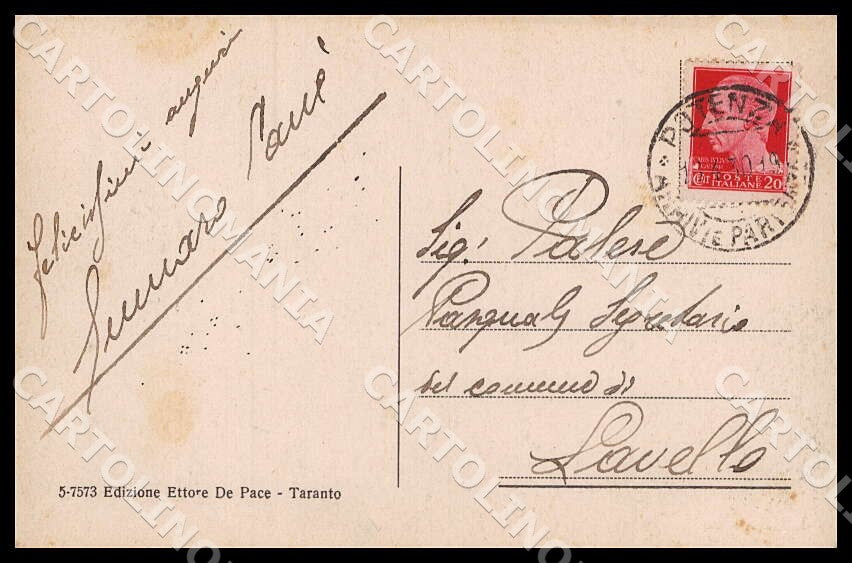 Felicissimi auguri
Gennaro
Sig. Palese
Pasquale Segretario
del comune di
Lavello
POTENZA
ARRIVI E PARTENZE
POSTE
ITALIANE
CENT 20
5-7573 Edizione Ettore De Pace - Taranto
CARTOLINOMANIA